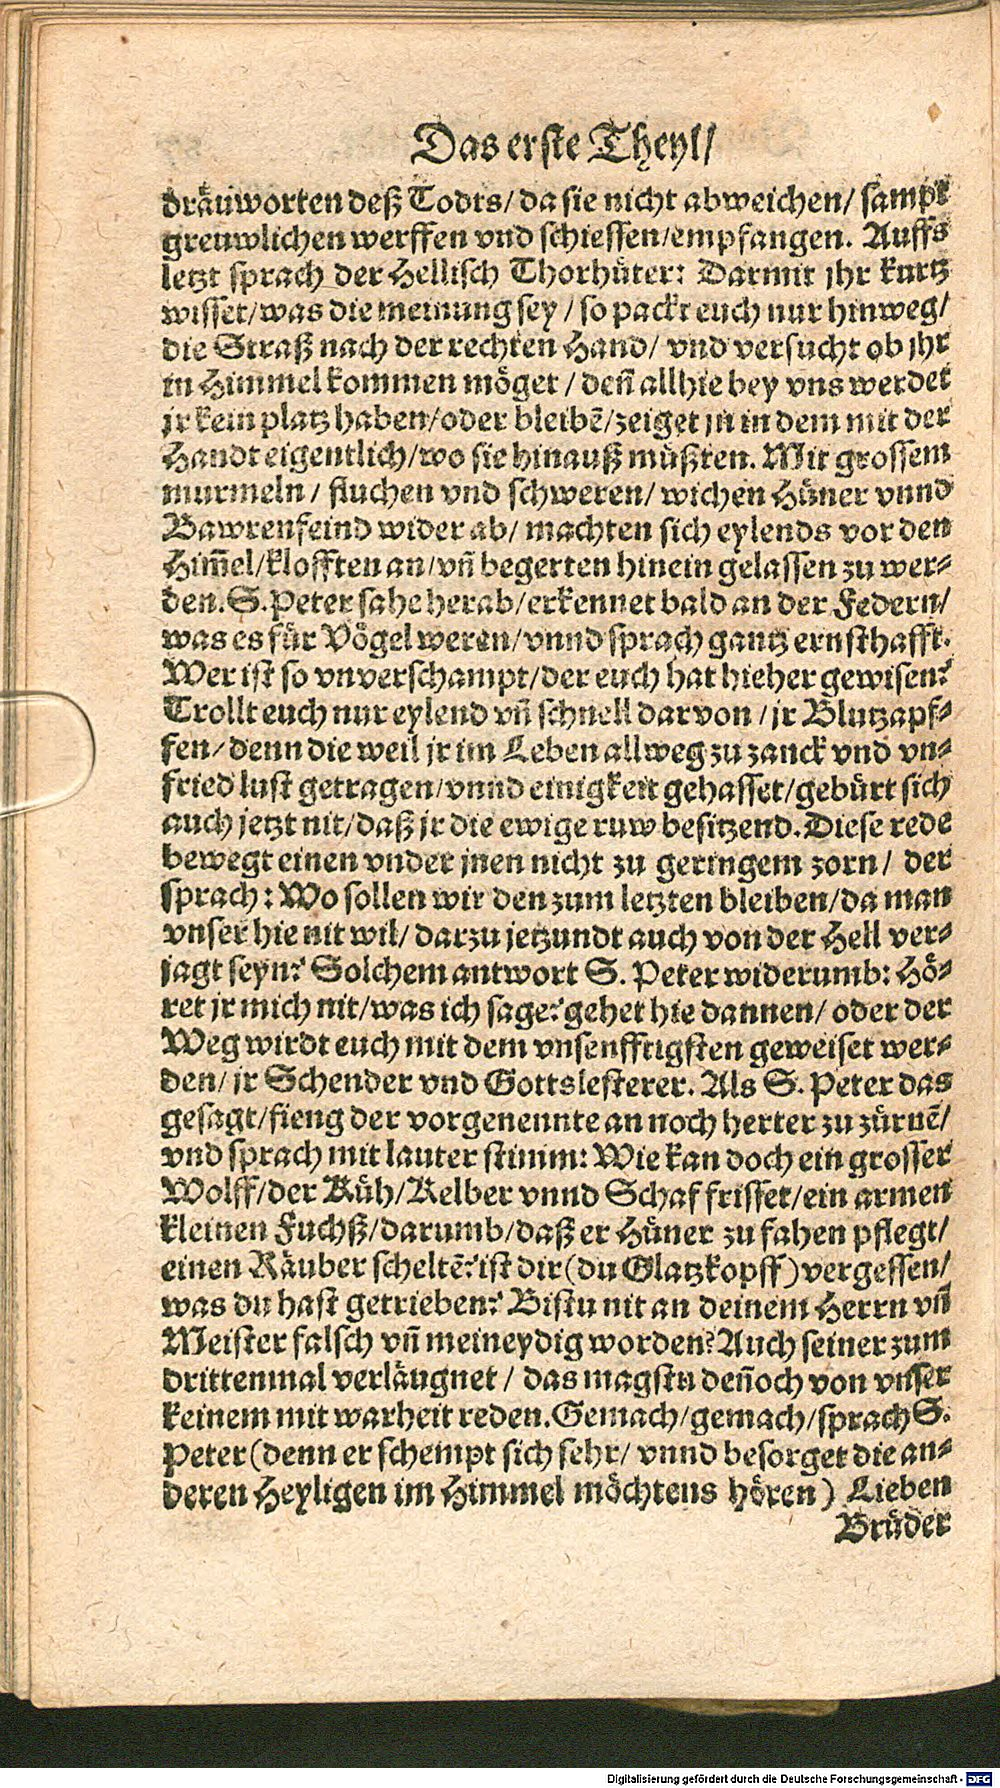 Das erste Theyl/
dräuworten deß Todts/ da sie nicht abweichen/ sampt
greuwlichen werffen vnd schiessen/ empfangen. Auffs
letzt sprach der Hellisch Thorhüter: Darmit jhr kurtz
wisset/ was die meinung sey / so packt euch nur hinweg/
die Straß nach der rechten Hand/ vnd versucht ob jhr
in Himmel kommen möget / deñ allhie bey vns werdet
jr kein platz haben/ oder bleibẽ/ zeiget jn in dem mit der
Handt eigentlich/ wo sie hinauß müßten. Mit grossem
murmeln / fluchen vnd schweren/ wichen Hüner vnnd
Bawrenfeind wider ab/ machten sich eylends vor den
Him̃el/ klofften an/ vñ begerten hinein gelassen zu wer⸗
den. S. Peter sahe herab/ erkennet bald an der Federn/
was es für Vögel weren/ vnnd sprach gantz ernsthafft.
Wer ist so vnverschampt/ der euch hat hieher gewisen?
Trollt euch nur eylend vñ schnell darvon / jr Blutzapf⸗
fen/ denn die weil jr im Leben allweg zu zanck vnd vn⸗
fried lust getragen/ vnnd einigkeit gehasset/ gebürt sich
auch jetzt nit/ daß jr die ewige ruw besitzend. Diese rede
bewegt einen vnder jnen nicht zu geringem zorn/ der
sprach: Wo sollen wir den zum letzten bleiben/ da man
vnser hie nit wil/ darzu jetzundt auch von der Hell ver⸗
jagt seyn? Solchem antwort S. Peter widerumb: Hö⸗
ret jr mich nit/ was ich sage? gehet hie dannen/ oder der
Weg wirdt euch mit dem vnsenfftigsten geweiset wer⸗
den/ jr Schender vnd Gottslesterer. Als S. Peter das
gesagt/ fieng der vorgenennte an noch herter zu zürnẽ/
vnd sprach mit lauter stimm: Wie kan doch ein grosser
Wolff/ der Küh/ Kelber vnnd Schaf frisset/ ein armen
kleinen Fuchß/ darumb/ daß er Hüner zu fahen pflegt/
einen Räuber scheltẽ? ist dir (du Glatzkopff) vergessen/
was du hast getrieben? Bistu nit an deinem Herrn vñ
Meister falsch vñ meineydig worden? Auch seiner zum
drittenmal verläugnet / das magstu deñoch von vnser
keinem mit warheit reden. Gemach/ gemach/ sprach S.
Peter (denn er schempt sich sehr/ vnnd besorget die an⸗
deren Heyligen im Himmel möchtens hören) Lieben
Brüder
Digitalisierung gefördert durch die Deutsche Forschungsgemeinschaft - DFG